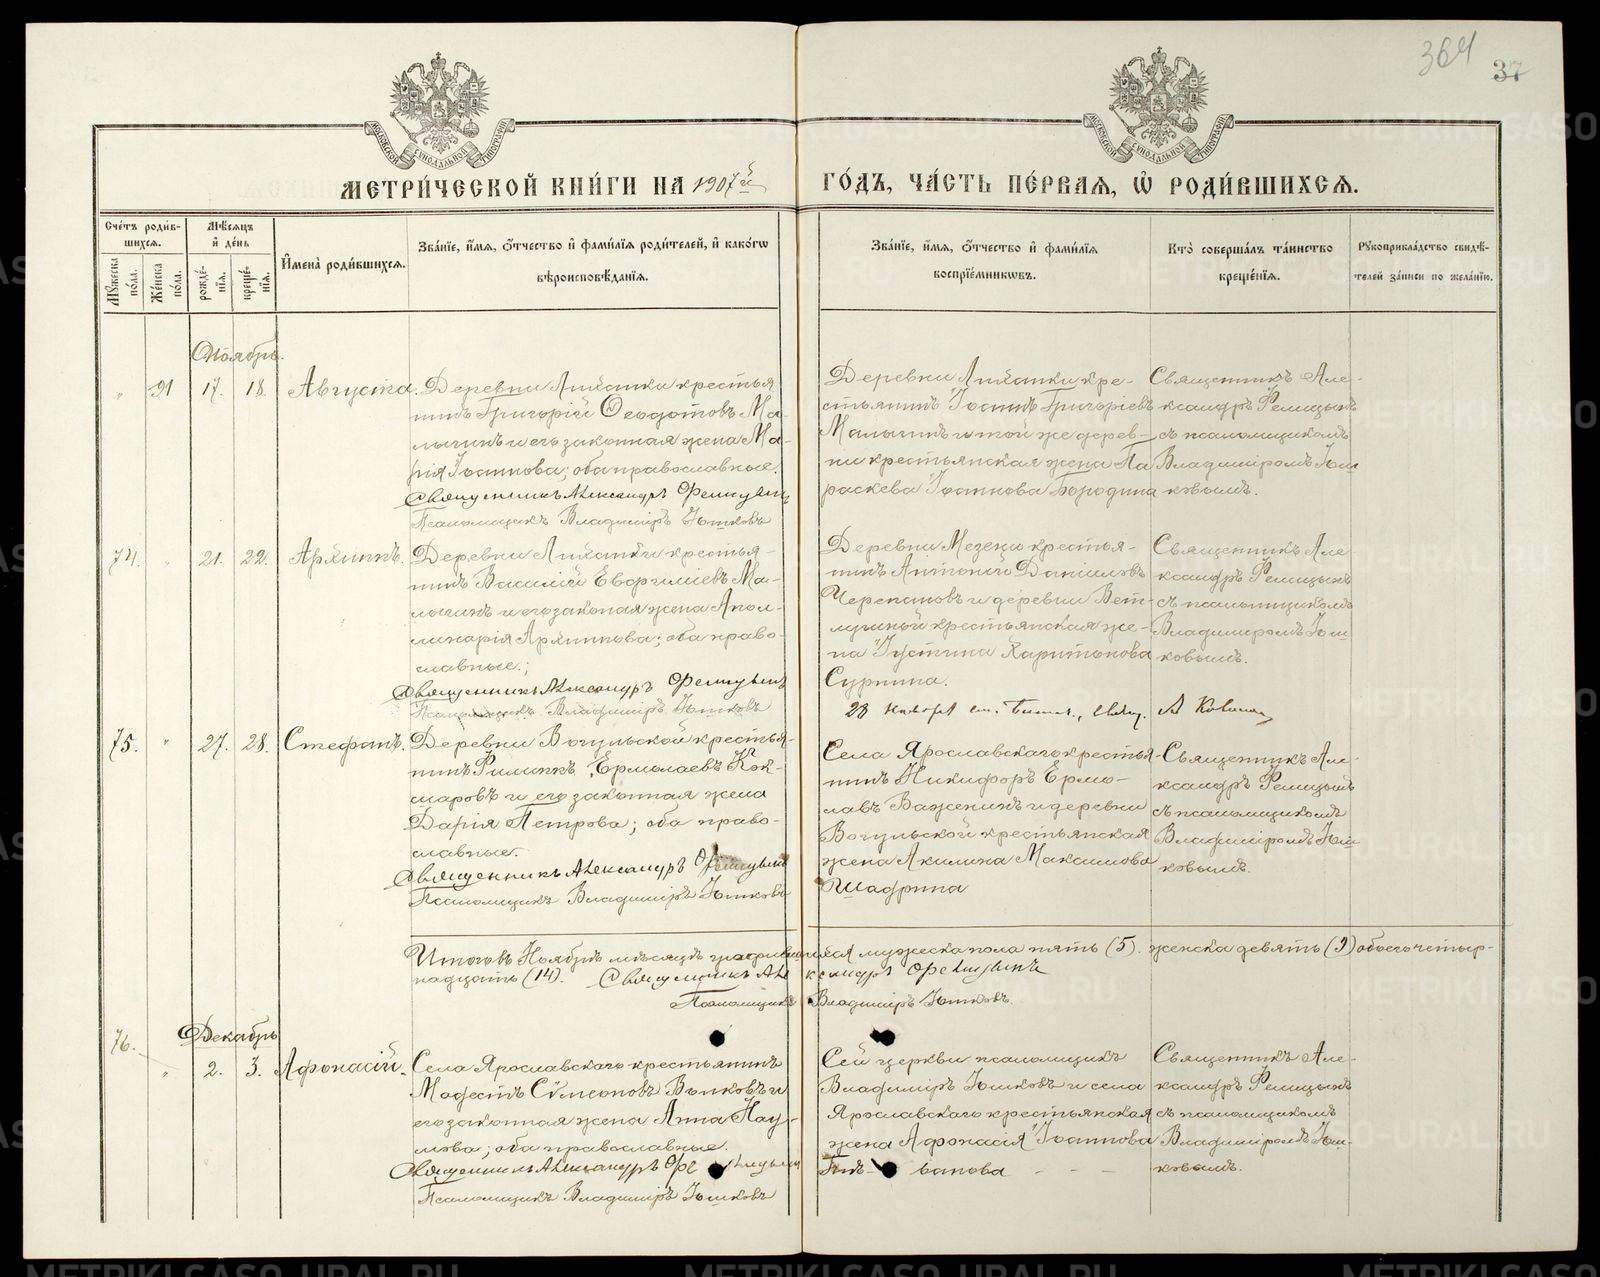 364
37
МОСКОВСКОЙ СѴНОДАЛЬНОЙ ТИПОГРАФІИ
МОСКОВСКОЙ СѴНОДАЛЬНОЙ ТИПОГРАФІИ
МЕТРИ́ЧЕСКОЙ КНИ́ГИ НА 1907й ГО́ДЪ, ЧА́СТЬ ПЕ́РВАЯ, Ѡ РОДИ́ВШИХСЯ.
Сче́тъ роди́в-
шихся.
Мꙋ́жеска по́ла.
Же́нска по́ла.
Мѣ́сяцъ
и́ де́нь
рожде́-
нїя.
креще́-
нїя.
И҆мена̀ роди́вшихся.
Зва́нїе, и҆́мя, о҆́тчество и҆ фами́лїя роди́телей, и҆ како́гѡ
вѣроисповѣ́данїя.
Зва́нїе, и҆́мя, о҆́тчество и҆ фами́лїя
воспрїе́мникѡвъ.
Кто̀ соверша́лъ та́инство
креще́нїя.
Рꙋкоприкла́дство свидѣ́-
телей за́писи по жела́нїю.
Ноябрь.
" 91 17. 18. Августа.
Деревни крестья
нинъ Григорій Ѳеодотовъ Ма-
лыгинъ и его законная жена Ма-
рія Іоаннова; оба православные.
Священникъ Александръ
Псаломщикъ Владиміръ Юшковъ
Деревни кре-
стьянинъ Іоаннъ Григоріевъ
Малыгинъ и той же дерев-
ни крестьянская жена Па
раскева Іоаннова Бородина
Священникъ Але-
ксандръ
съ псаломщикомъ
Владиміромъ Юш
ковымъ.
74. " 21. 22.
Деревни крестья-
нинъ Василій Ма-
лыгинъ и его законая жена Апол-
линарія; оба право-
славные.;
Священникъ Александръ
Псаломщикъ Владиміръ Юшковъ
Деревни Мезени крестья-
нинъ Антоній Даніиловъ
Черепановъ и деревни
крестьянская же-
на Іустина Харитонова
Сурнина.
Священникъ Але-
ксандръ
съ псаломщикомъ
Владиміромъ Юш
ковымъ.
28
75. " 27. 28. Стефанъ.
Деревни Вогульской крестья-
нинъ Филиппъ Ермолаевъ Кок-
шаровъ и его законная жена
Дарія Петрова; оба право-
славные.
Священникъ Александръ
Псаломщикъ Владиміръ Юшковъ
Села Ярославскаго крестья-
нинъ Никифоръ Ермо-
лаевъ Важенинъ и деревни
Вогульской крестьянская
жена Акилина Максимова
Шадрина
Священникъ Але-
ксандръ
съ псаломщикомъ
Владиміромъ Юш
ковымъ.
Итого въ Ноябрѣ мѣсяцѣ мужеска пола пять (5). женска девять (9) обоего четыр-
надцать (14). Священникъ Александръ
Псаломщикъ Владиміръ Юшковъ.
Декабрь
76. " 2. 3. Афонасій.
Села Ярославскаго крестьянинъ
Модестъ Сѵмеоновъ Волковъ и
его законная жена Анна Нау-
мова; оба православные.
Священникъ Александръ
Псаломщикъ Владиміръ Юшковъ
Сей церкви псаломщикъ
Владиміръ Юшковъ и села
Ярославскаго крестьянская
жена Афонасія Іоаннова
Священникъ Але-
ксандръ
съ псаломщикомъ
Владиміромъ Юш-
ковымъ.
METRIKI.GASO-URAL.RU